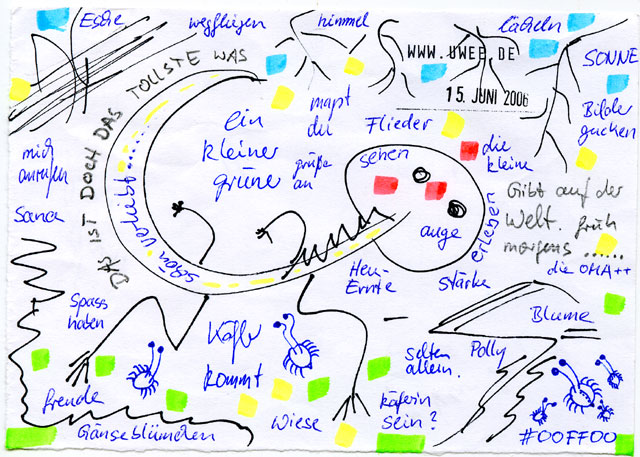 Esche
wegfliegen
himmel
lächeln
WWW.UWEE.DE
SONNE
15. JUNI 2006
DAS IST DOCH DAS TOLLSTE WAS
schön verliebt......
ein
kleiner
grüne
mapt
du
grüße
an
Flieder
sehen
die
kleine
Bilder
gucken
mich
anrufen
Sanca
auge
erleben
Gibt auf der
Welt. früh
morgens ......
die OMA++
Heu-
Ernte
Stärke
Blume
Spass
haben
Käfer
kommt
selten
allein.
Polly
freude
Wiese
käferin
sein?
Gänseblümchen
#00FF00